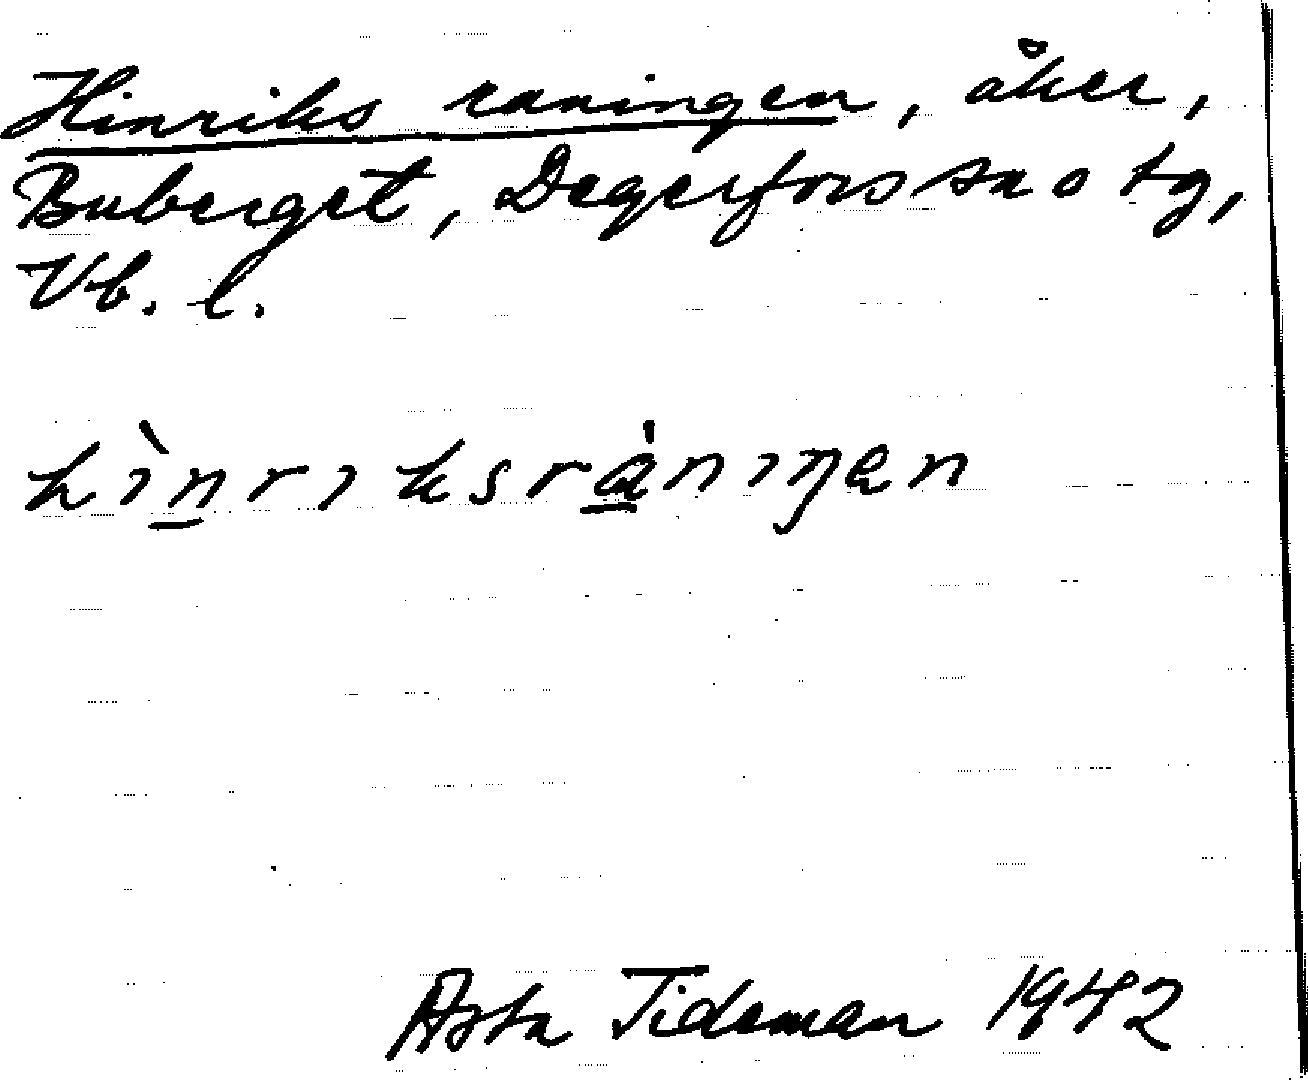 Hinriks raningen, åker,
Buberget, Degerfors sn o tg,
Vb. l.
hìnriksrȧniŋen
Asta Tideman 1942